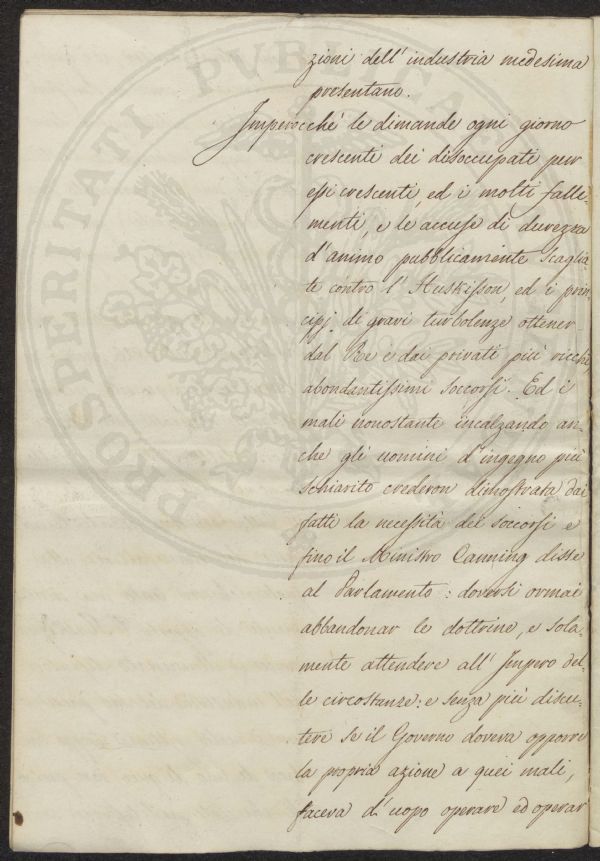 zioni dell' industria medesima
presentano.
Imperocché le dimande ogni giorno
crescenti dei disoccupati pur
essi crescenti, ed i molti falli-
menti, e le accuse di durezza
d'animo pubblicamente scaglia
te contro l' Huskisson, ed i prin-
cipj di gravi turbolenze ottener
dal Re e dai privati più ricchi
abondantissimi soccorsi. Ed i
mali nonostante incalzando an-
che gli uomini d'ingegno più
schiarito crederon dimostrata dai
fatti la necessità dei soccorsi e
fino il Ministro Canning disse
al Parlamento: doversi ormai
abbandonar le dottrine, e sola-
mente attendere all' Impero del-
le circostanze: e senza più discu-
tere se il Governo doveva opporre
la propria azione a quei mali,
faceva d'uopo operare ed operar
PROSPERITATI PVBLICAE